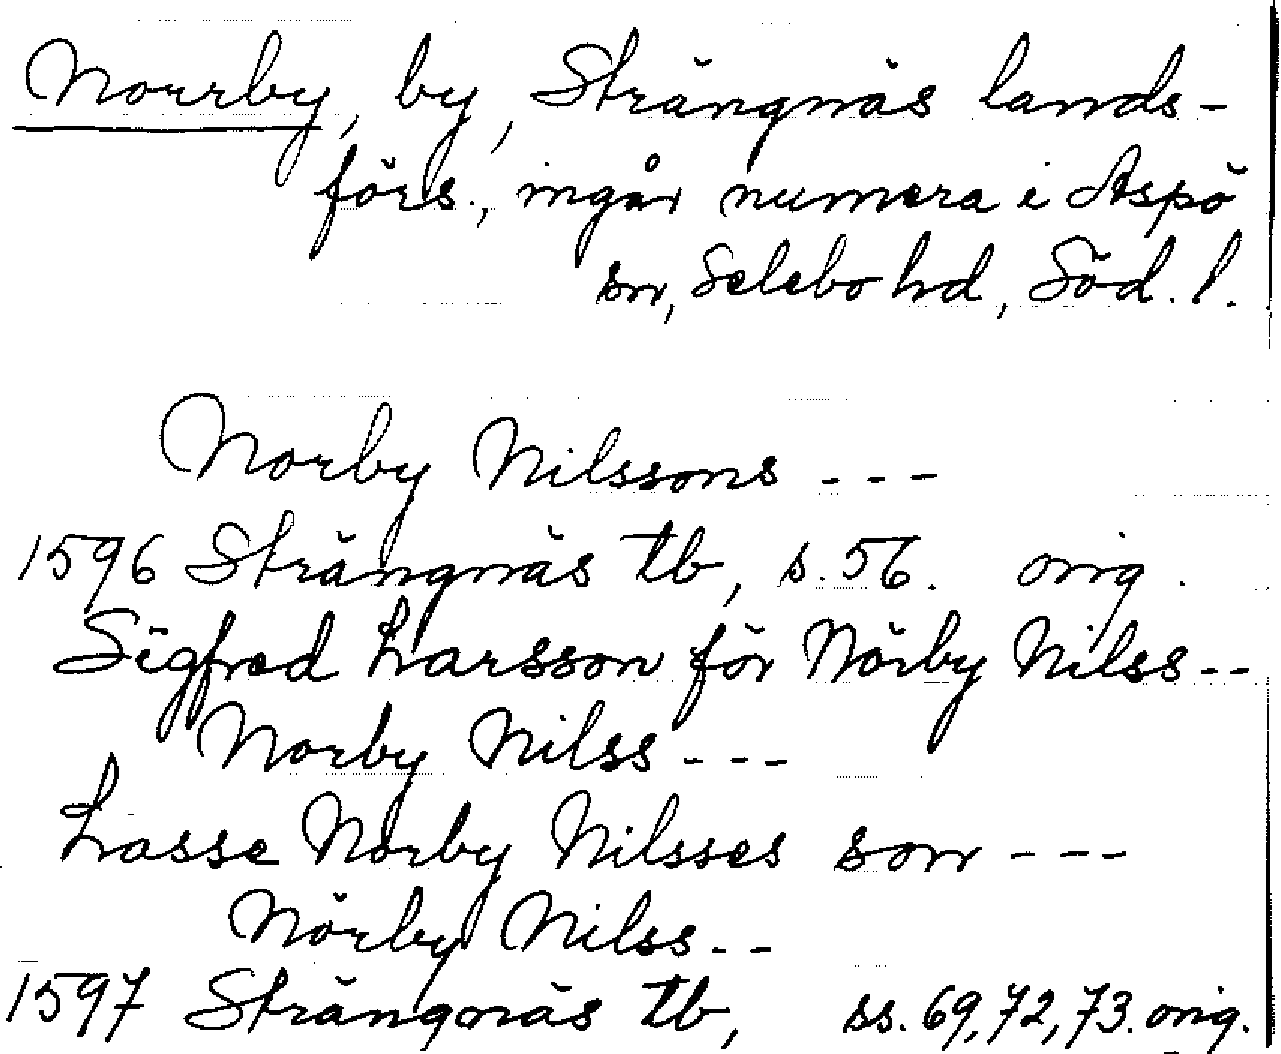 Norrby, by, Strängnäs lands-
förs., ingår numera i Aspö
sn, Selebo hd, Söd. l.
Norby Nilssons - - -
1596 Strängnäs tb, s. 56. orig.
Sigfred Larsson för Nörby Nilss - -
Norby Nilss - - -
Lasse Norby Nilsses son - - -
Nörby Nilss - -
1597 Strängnäs tb, ss. 69, 72, 73. orig.